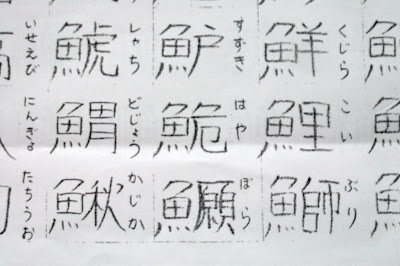 鮮 くじら
魲 すずき
鯱 しゃち
いせえび
鯉 こい
鮠 はや
どじょう
にんぎょ
鰤 ぶり
ぼら
鰍 かじか
たちうお